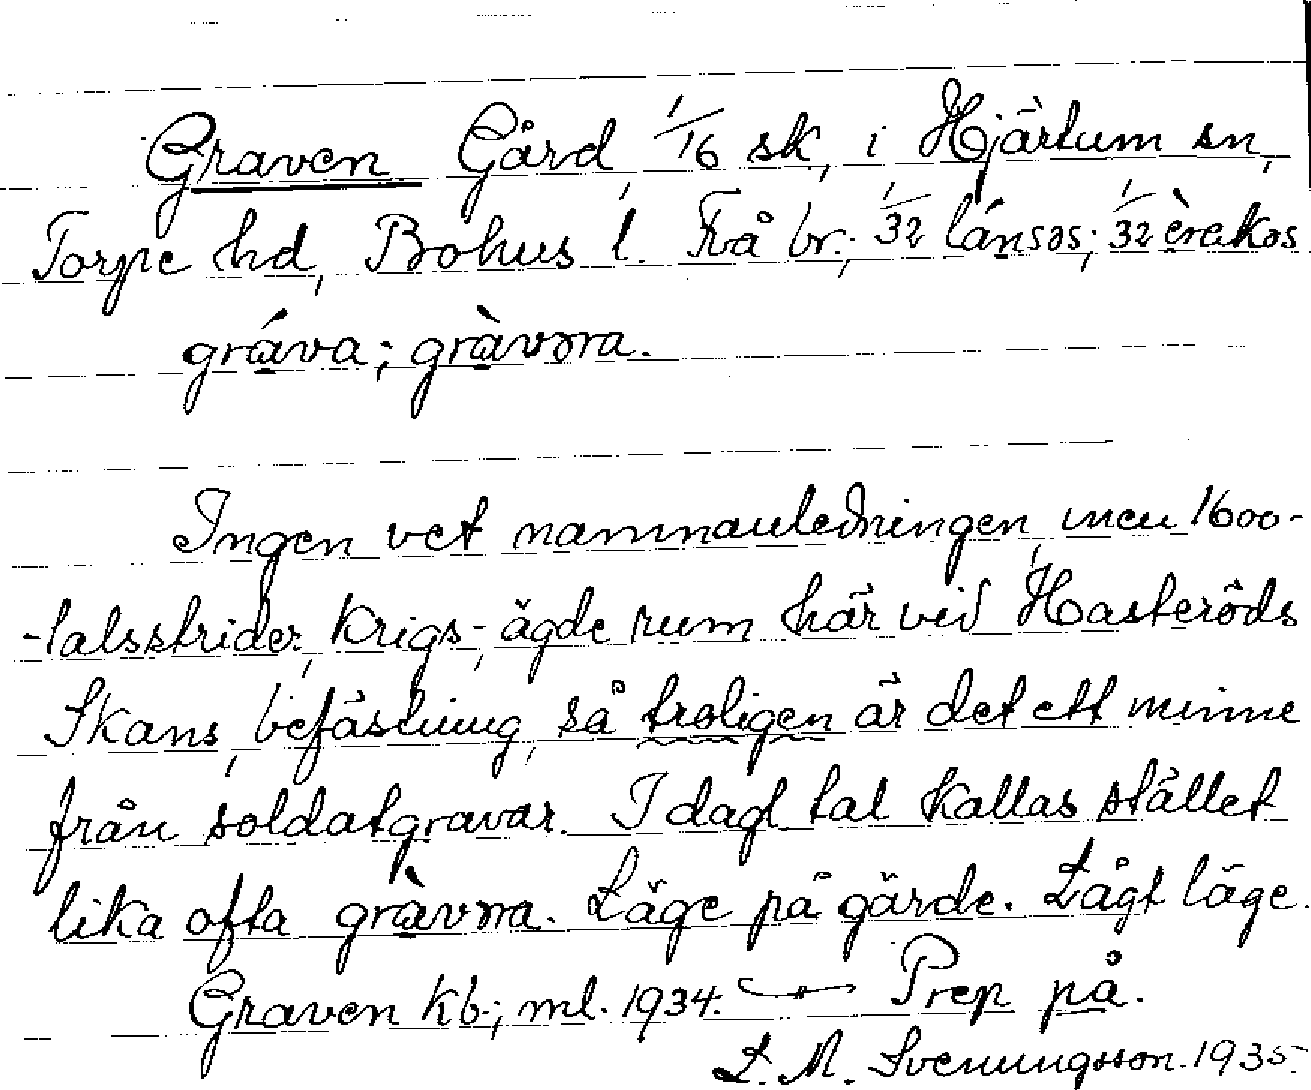 Graven Gård, 1/16 sk, i Hjärtum sn,
Torpe hd, Bohus l. Två br.; 1/32 lánsəs; 1/32 èrekos
gráva; gràvəra.
Ingen vet namnanledningen, men 1600-
-talsstrider, krigs-, ägde rum här vid Hasteröds
Skans, befästning, så troligen är det ett minne
från soldatgravar. I dagl tal kallas stället
lika ofta gràvəra. Läge på gärde. Lågt läge.
Graven kb.; ml. 1934. Prep på.
L. M. Svenungsson. 1935.